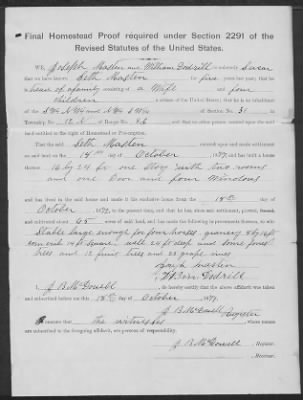 Final Homestead Proof required under Section 2291 of the
Revised Statutes of the United States.
WE, Joseph Masten and William Dodrill do solemnly Swear
that we have known Seth Masten for five years last past; that he is
head of a family consisting of a Wife and four
children a citizen of the United States; that he is an inhabitant
of the of Section No. 31
Township No. 12 N of Range No. and that no other person resided upon the said
land entitled to the right of Homestead or Pre-emption.
That the said Seth Masten entered upon and made settlement
on said land on the 14th day of October, 187 and has built a house
thereon 16 by 24 ft one Story with two rooms
and one Door and four Windows
and has lived in the said house and made it his exclusive home from the 14th day of
October, 187 to the present time, and that he has, since said settlement, plowed, fenced,
and cultivated 65 acres of said land, and has made the following improvements thereon, to wit:
Stable large enough for four horses granary
well 24 ft deep and some forest
trees and 12 fruit trees and 23 grape vines
Joseph Masten
William Dodrill
I, J B McDowell, do hereby certify that the above affidavit was taken
and subscribed before me this day of October, 187
J B McDowell
Register
WE CERTIFY that the witnesses whose names
are subscribed to the foregoing affidavit, are persons of respectability.
J B McDowell, Register.
, Receiver.